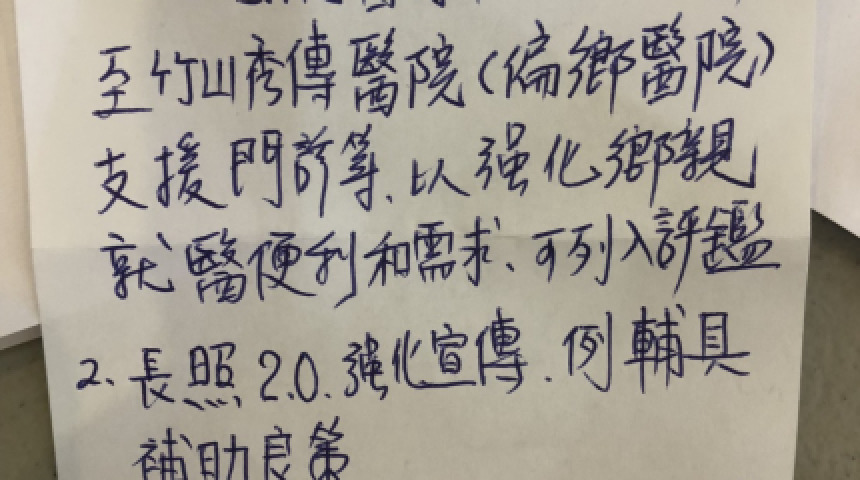 至竹山秀傳醫院(偏鄉醫院)
支援門診等、以強化鄉親
就醫便利和需求、可列入評鑑
2. 長照2.0.強化宣傳.例輔具
補助良策